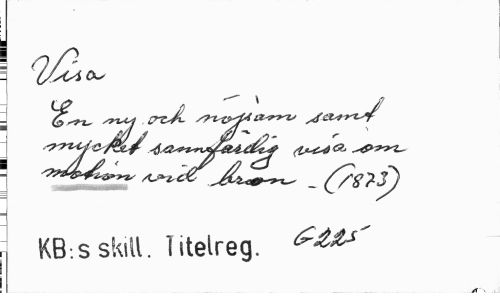 Visa
En ny och nöjsam samt
mycket sannfärdig visa om
motion vid bron - (1873)
KB:s skill. Titelreg. G 225